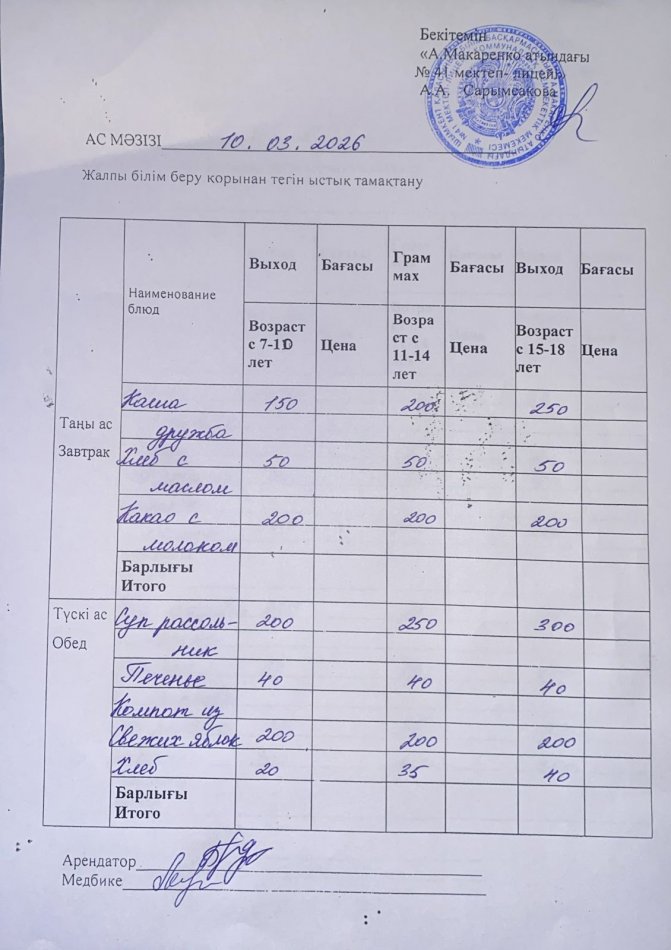 Бекітемін
«А.Макаренко атындағы
№ 41 мектеп- лицей»
А.А. Сарымсакова
АС МӘЗІЗІ 10. 03. 2026
Жалпы білім беру қорынан тегін ыстық тамақтану
Наименование блюд
Выход Бағасы Грам мах Бағасы Выход Бағасы
Возраст с 7-10 лет Цена Возра ст с 11-14 лет Цена Возраст с 15-18 лет Цена
Таңы ас
Завтрак
Каша 150 200 250
дружба
Хлеб с 50 50 50
маслом
Какао с 200 200 200
молоком
Барлығы
Итого
Түскі ас
Обед
Суп рассоль- 200 250 300
ник
Печенье 40 40 40
Компот из
Свежих яблок 200 200 200
Хлеб 20 35 40
Барлығы
Итого
Арендатор
Медбике